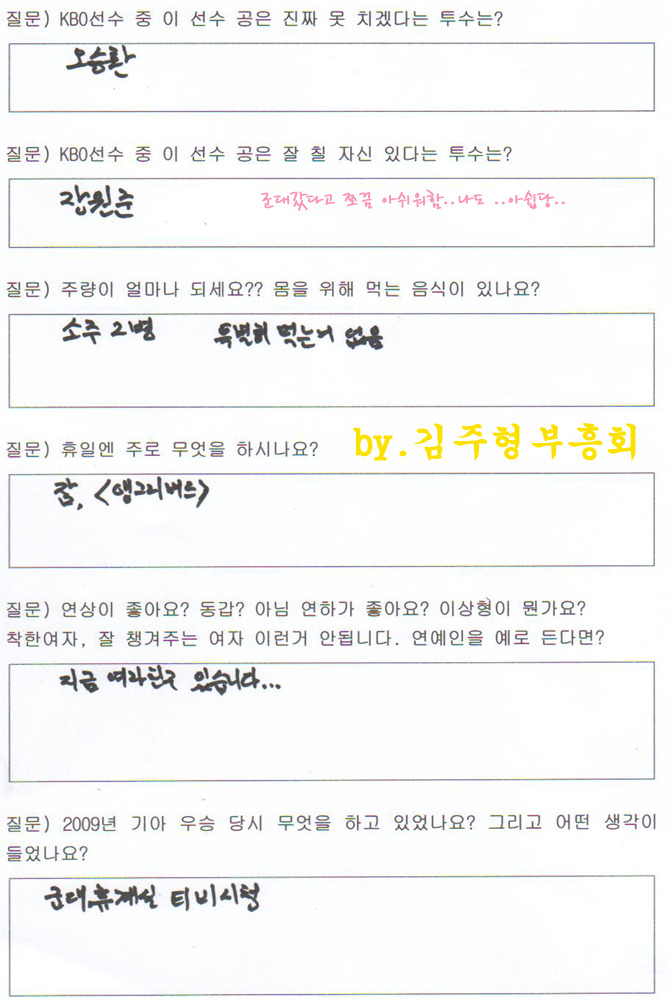 질문) KBO선수 중 이 선수 공은 진짜 못 치겠다는 투수는?
오승환
질문) KBO선수 중 이 선수 공은 잘 칠 자신 있다는 투수는?
장원준 군대갔다고 쪼끔 아쉬워함..나도 ..아쉽당..
질문) 주량이 얼마나 되세요?? 몸을 위해 먹는 음식이 있나요?
소주 2병 특별히 먹는거 없음
질문) 휴일엔 주로 무엇을 하시나요?
by.김주형부흥회
잠, <앵그리버드>
질문) 연상이 좋아요? 동갑? 아님 연하가 좋아요? 이상형이 뭔가요?
착한여자, 잘 챙겨주는 여자 이런거 안됩니다. 연예인을 예로 든다면?
지금 여자친구 있습니다...
질문) 2009년 기아 우승 당시 무엇을 하고 있었나요? 그리고 어떤 생각이
들었나요?
군대,휴게실 티비시청